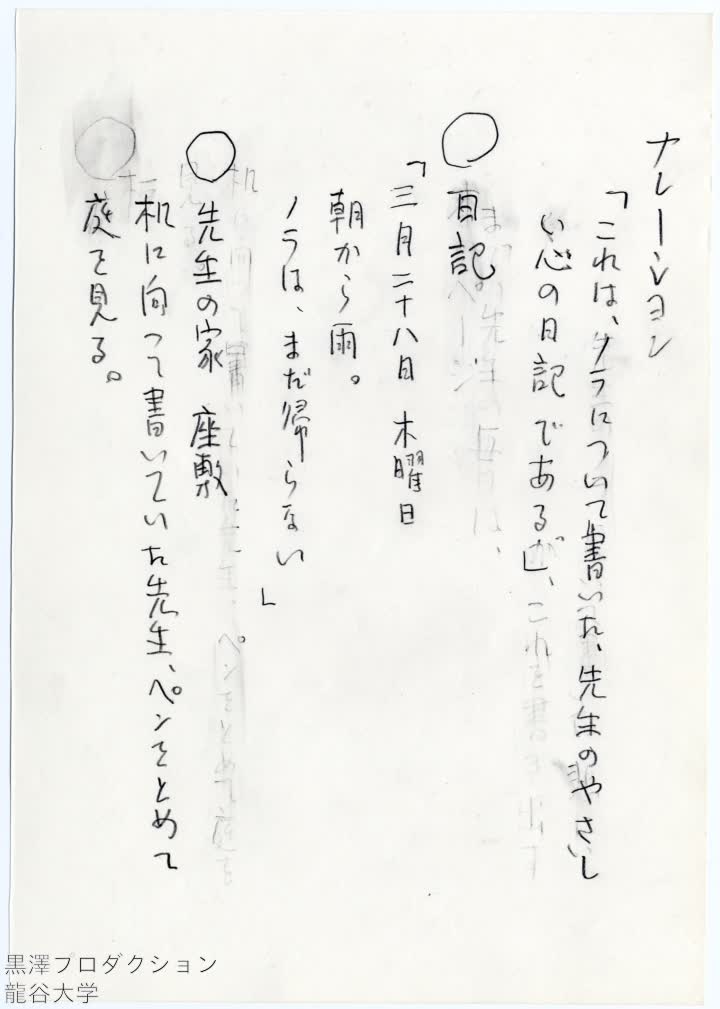 ナレーション
「これは、ノラについて書いた、先生のやさし
い心の日記である」
○日記
「三月二十八日 木曜日
朝から雨。
ノラは、まだ帰らない」
○先生の家 座敷
机に向って書いていた先生、ペンをとめて
庭を見る。
黒澤プロダクション
龍谷大学